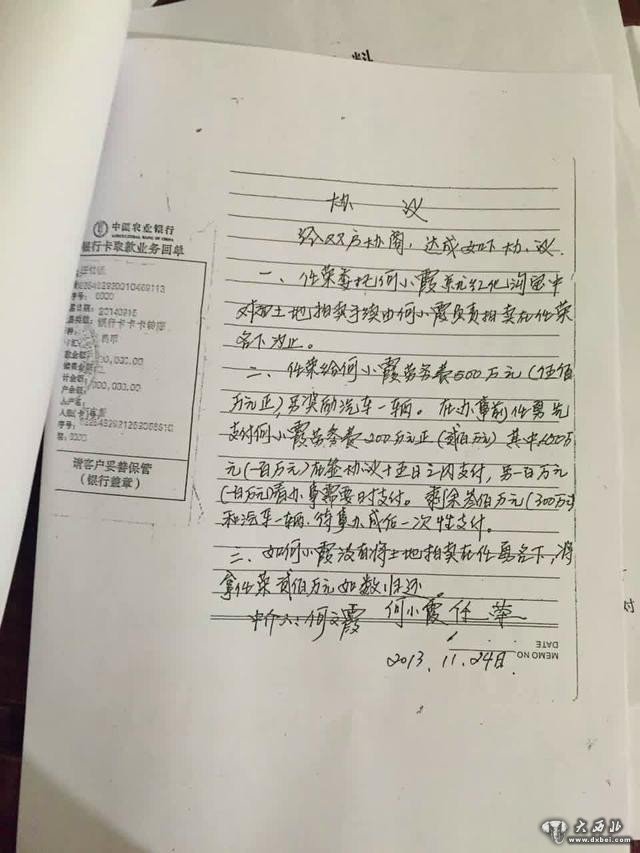 料
协 议
经双方协商，达成如下协议
一、任荣委托何小霞
土地拍卖手续由何小霞负责拍卖在任荣
名下为止。
二、任荣给何小霞劳务费500万元（伍佰
万元正），另奖励汽车一辆。在办事前任勇先
支付何小霞劳务费200万元正（贰百万元）其中100万
元（一百万元）在签协议十五日之内支付，另一百万元
（一百万元）看办事需要时支付。剩余叁佰万元（300万元）
和汽车一辆，待事办成后一次性支付。
二、如何小霞没有将土地拍卖在任勇名下，将
拿任荣贰佰万元如数归还
中介人：何文霞 何小霞 任荣
MEMO NO
DATE
2013.11.24日
中国农业银行
AGRICULTURAL BANK OF CHINA
银行卡取款业务回单
序号：0000
20140916
银行卡卡卡转账
000,000.00
000,000.00
请客户妥善保管
（银行盖章）
对
大西北
www.dxbei.com